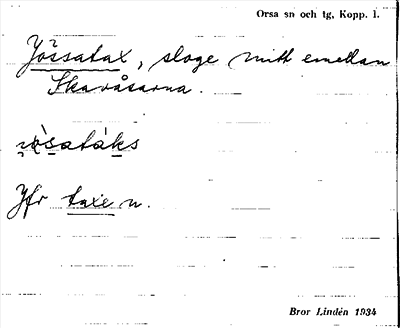 Orsa sn och tg, Kopp. l.
Jössatax, sloge mitt emellan
Skavåsarna.
Jfr taxe n.
Bror Lindén 1934